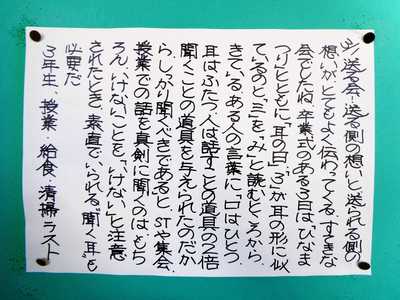 3/1送る会…送る側の想いと送られる側の
想いがとてもよく伝わってくる、すてきな
会でしたね。卒業式のある3月は、ひなま
つりとともに、「耳の日」。「3」が耳の形に似
ているのと、「三」を、「み」と読むところから、
きている。ある人の言葉に、「口はひとつ、
耳はふたつ。人は話すことの道具の2倍
聞くことの道具を与えられたのだか
ら、しっかり聞くべきである」と。STや集会、
授業での話を真剣に聞くのは、もち
ろん、いけないことを、「いけない」と注意
されたとき、素直でいられる「聞く耳」も
必要だ
3年生、授業・給食・清掃ラスト